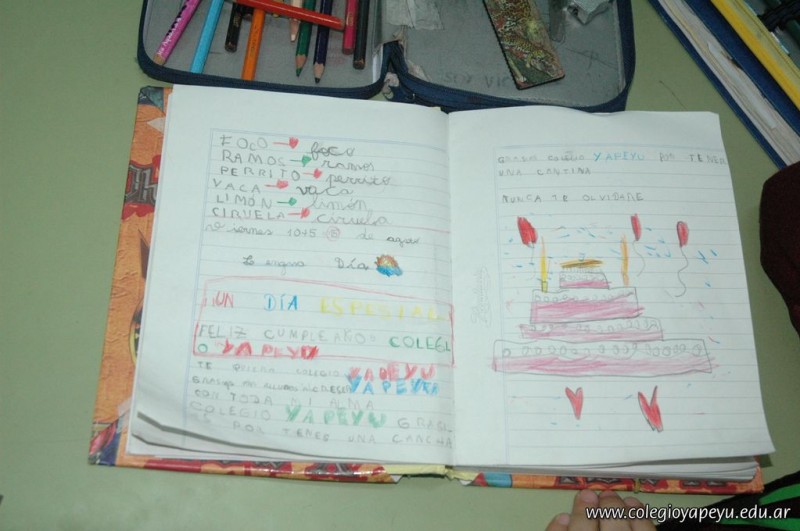 FOCO → foco
RAMOS → ramos
PERRITO → perrito
VACA → vaca
LIMÓN → limón
CIRUELA → ciruela
Viernes 10 5 de ago
Lengua Día
¡UN DÍA ESPESIAL
FELIZ CUMPLEAÑOS COLEGI
O YAPEYU
TE QUIERO COLEGIO YAPEYU
YAPEYU
CON TODA MI ALMA
COLEGIO YAPEYU GRASI
POR TENES UNA CANCHA
GRASIAS COLEGIO YAPEYU POR TENER
UNA CANTINA
NUNCA TE OLVIDARE
www.colegioyapeyu.edu.ar